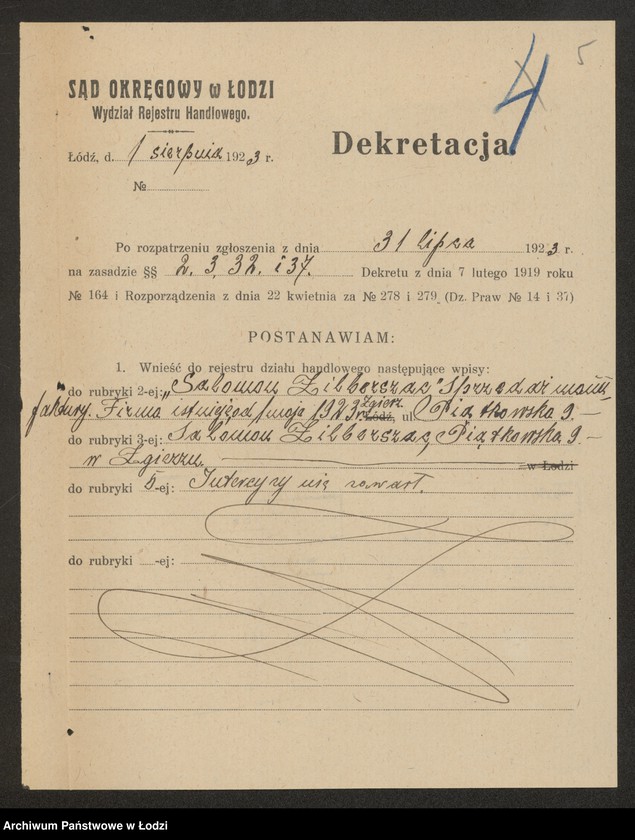 5
4
SĄD OKRĘGOWY w ŁODZI
Wydział Rejestru Handlowego.
Dekretacja.
Łódź, d. 1 sierpnia 1923 r.
№
Po rozpatrzeniu zgłoszenia z dnia 31 lipca 1923 r.
na zasadzie §§ 2. 3, 32. i 37. Dekretu z dnia 7 lutego 1919 roku
№ 164 i Rozporządzenia z dnia 22 kwietnia za № 278 i 279 (Dz. Praw № 14 i 37)
POSTANAWIAM:
1. Wnieść do rejestru działu handlowego następujące wpisy:
do rubryki 2-ej: „Salomon Zilberszac" Sprzedaż manu-
faktury. Firma istnieje od 1 maja 1923 r. Zgierz, Łódź, ul Piątkowska 9. –
do rubryki 3-ej: Salomon Zilberszac, Piątkowska 9. –
w Zgierzu. w Łodzi
do rubryki 5-ej: Intercyzy nie zawarł.
do rubryki -ej:
Archiwum Państwowe w Łodzi